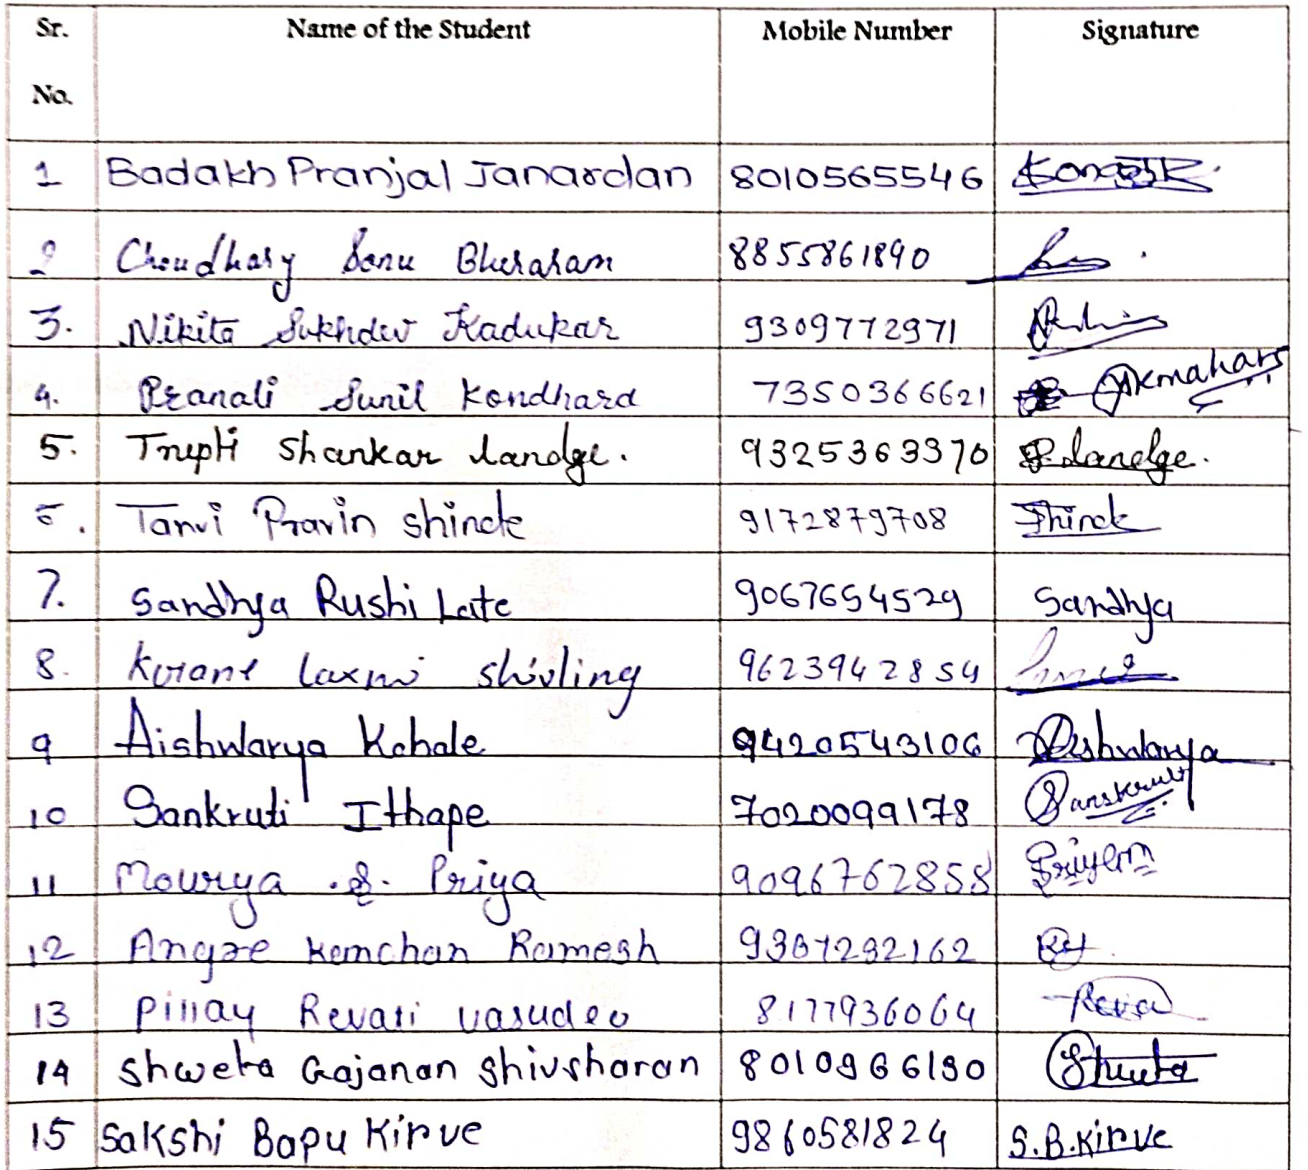 Sr. No. Name of the Student Mobile Number Signature
1 Badakh Pranjal Janardan 8010565546
2 Choudhary Sonu Bhuraram 8855861890
3. Nikita Sukhdev Kadukar 9309772971
4. Pranali Sunil Kondhard 7350366621
5. Trupti Shankar Landge. 9325363370 Landge.
6. Tanvi Pravin Shinde 9172879708 Shinde
7. Sandhya Rushi Late 9067654529 Sandhya
8. Laxmi Shivling 9623942854
9 Aishwarya Kohale 9420543106 Aishwarya
10 Sankruti Ithape 7020099178 Sanskruti
11 Mourya .S. Priya 9096762858
12 Angre Kanchan Ramesh 9307292162
13 Pillay Revati Vasudeo 8177936064 Reva
14 Shweta Gajanan Shivsharan 8010966190 Shweta
15 Sakshi Bapu Kirve 9860581824 S.B.Kirve